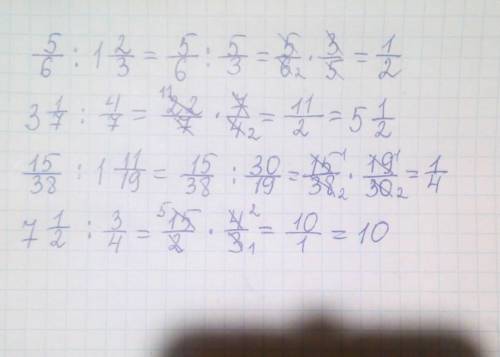 5/6 : 1 2/3 = 5/6 : 5/3 = 5/6 2 · 3/5 = 1/2
3 1/7 : 4/7 = 11 22/7 · 7/4 2 = 11/2 = 5 1/2
15/38 : 1 11/19 = 15/38 : 30/19 = 15 1/38 2 · 19 1/30 2 = 1/4
7 1/2 : 3/4 = 5 15/2 · 4 2/3 1 = 10/1 = 10